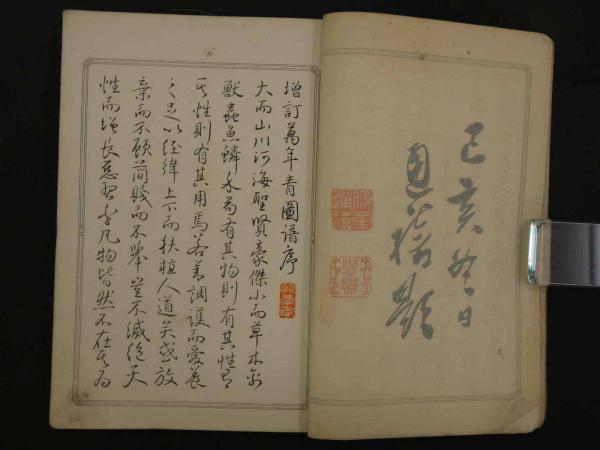 己亥冬日
題
增訂萬年青圖譜序
大而山川河海聖賢豪傑小而草木禽
獸蟲魚鱗木苟有其物則有其性有
其性則有其用焉若善調護而愛養
之足以經緯上下而扶植人道矣或放
棄而不顧簡賤而不舉豈不滅絕天
性而增長惡習乎凡物皆然不在其為